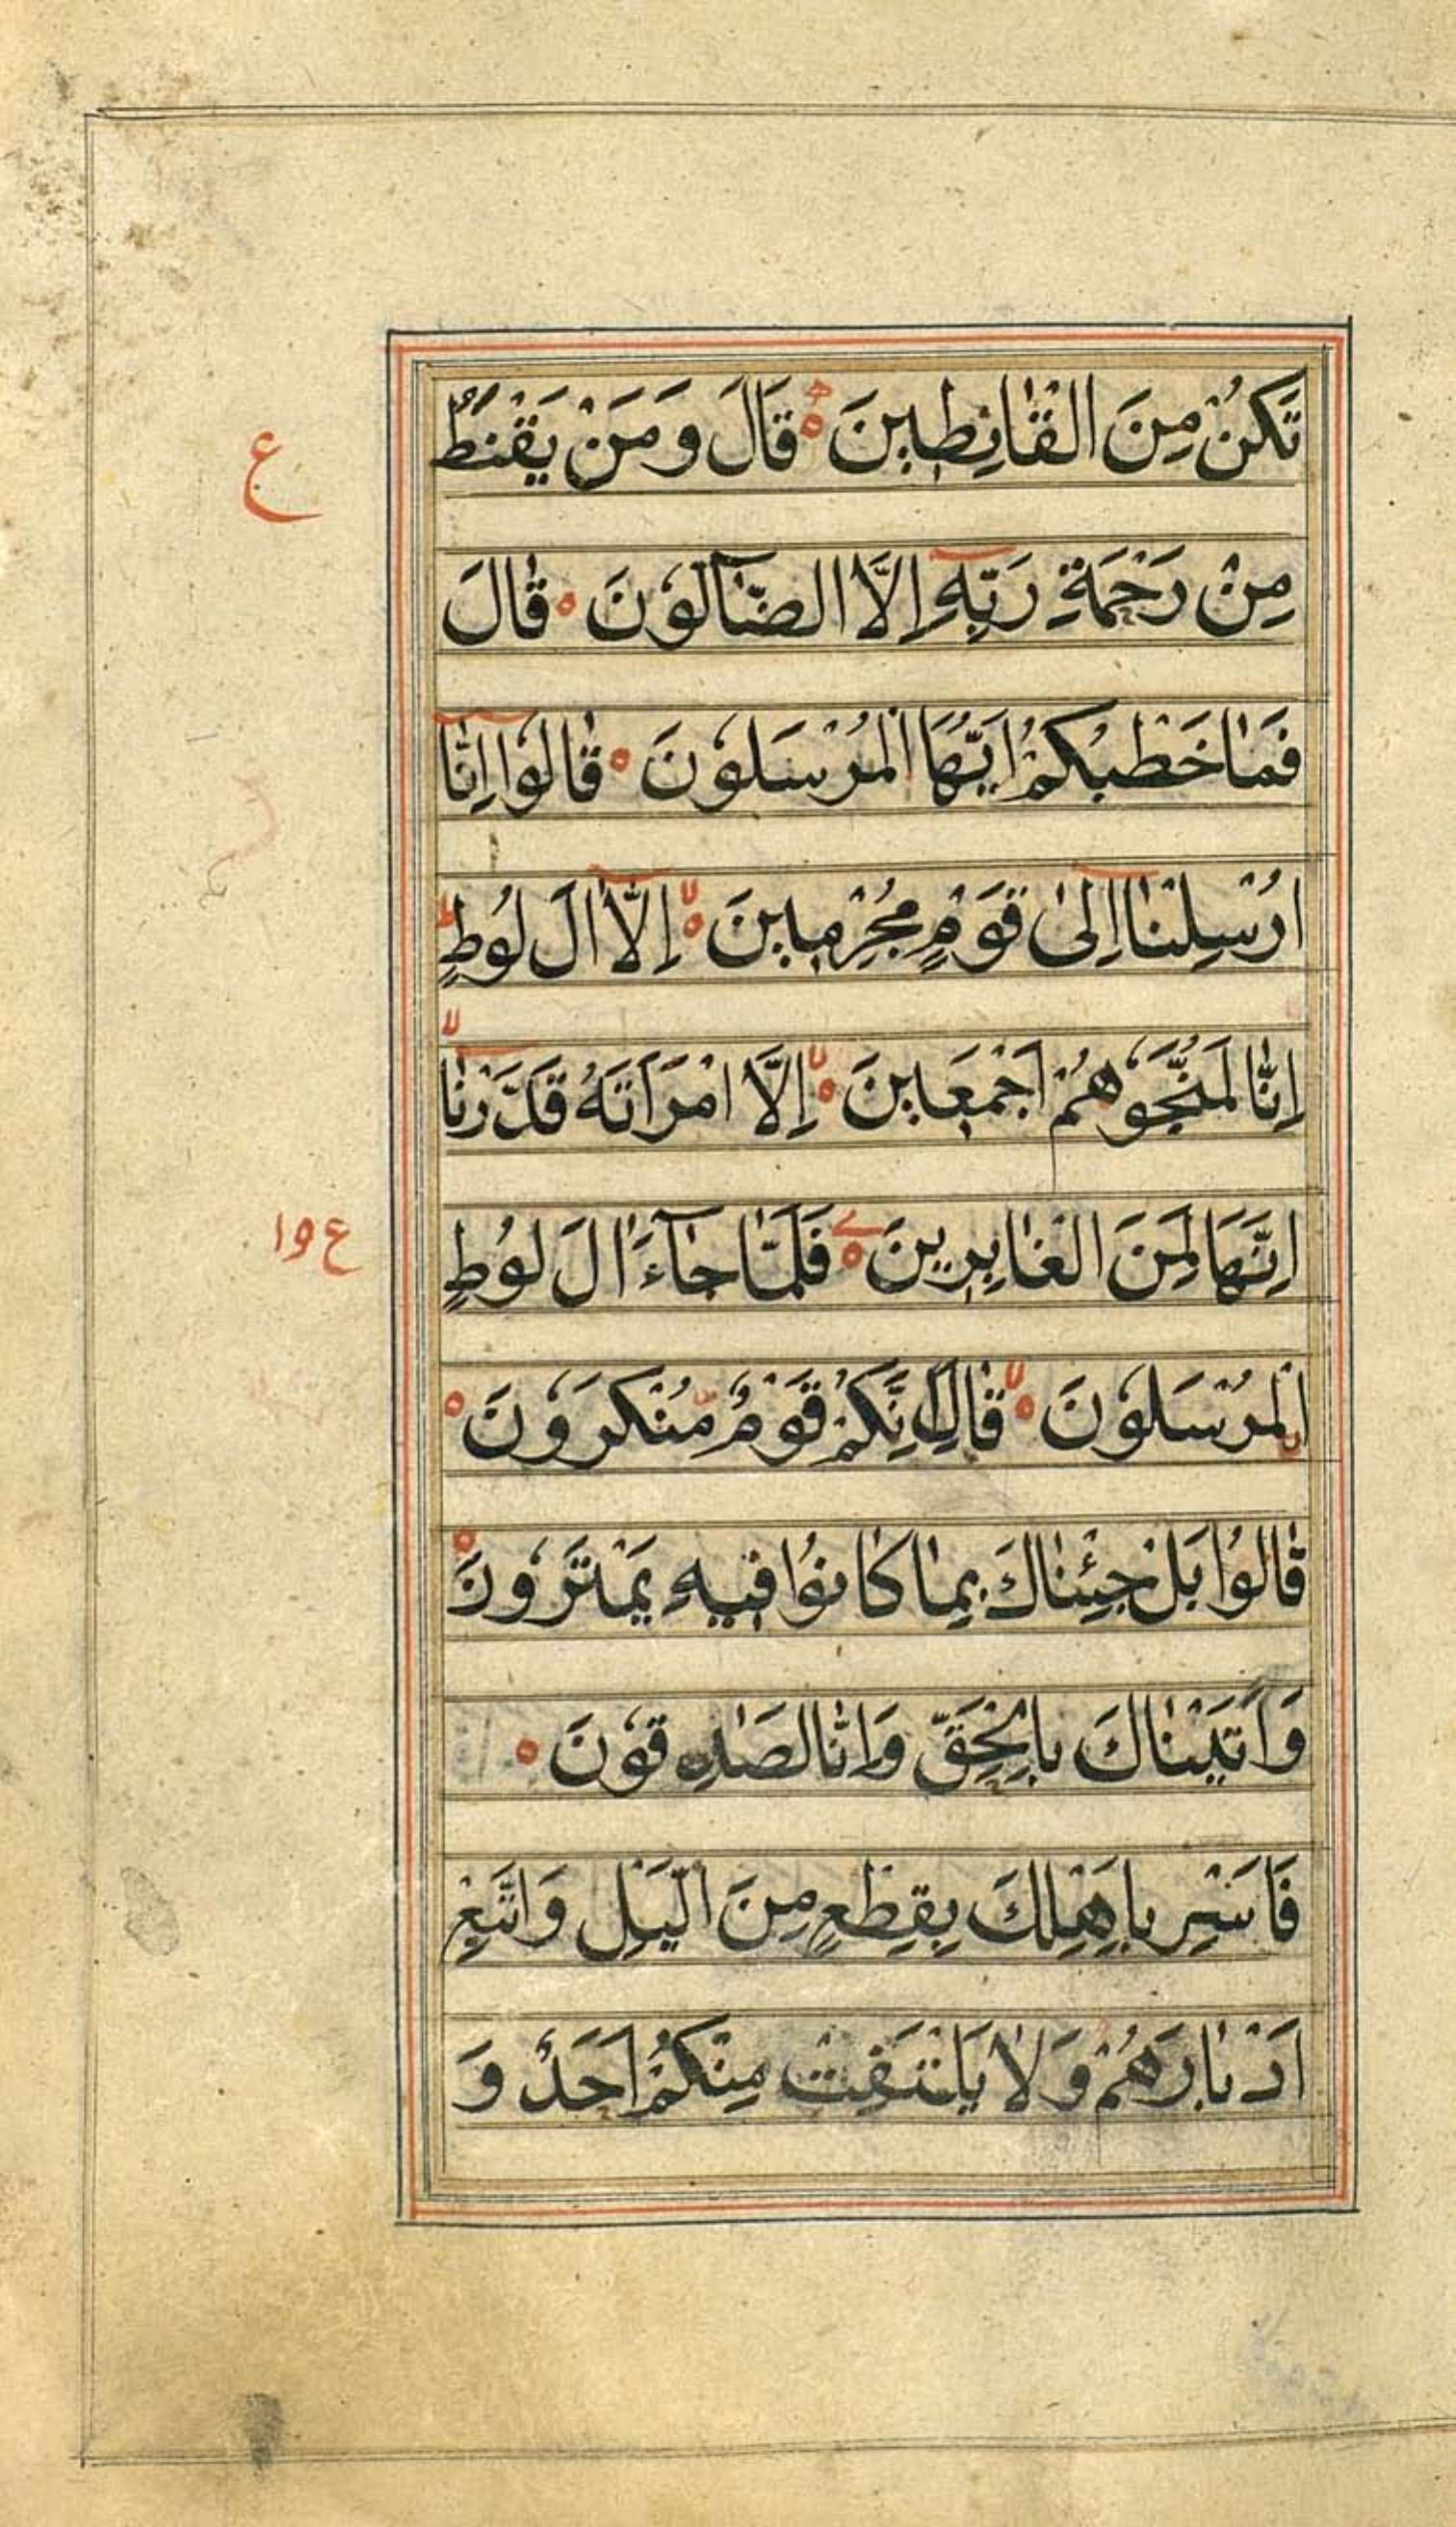 تَكُنْ مِنَ الْقَانِطِينَ ۝ قَالَ وَمَنْ يَقْنَطُ
ع
مِنْ رَحْمَةِ رَبِّهٖٓ اِلَّا الضَّآلُّوْنَ ۝ قَالَ
فَمَا خَطْبُكُمْ اَيُّهَا الْمُرْسَلُوْنَ ۝ قَالُوْٓا اِنَّآ
اُرْسِلْنَآ اِلٰى قَوْمٍ مُجْرِمِينَ ۝ اِلَّآ اٰلَ لُوْطٍ
اِنَّا لَمُنَجُّوْهُمْ اَجْمَعِينَ ۝ اِلَّا امْرَاَتَهُ قَدَّرْنَآ
اِنَّهَا لَمِنَ الْغَابِرِينَ ۝ فَلَمَّا جَآءَ اٰلَ لُوْطٍ
ع ١٩
الْمُرْسَلُوْنَ ۝ قَالَ اِنَّكُمْ قَوْمٌ مُنْكَرُوْنَ ۝
قَالُوْا بَلْ جِئْنَاكَ بِمَا كَانُوْا فِيهِ يَمْتَرُوْنَ ۝
وَاَتَيْنَاكَ بِالْحَقِّ وَاِنَّا لَصَادِقُوْنَ ۝
فَاَسْرِ بِاَهْلِكَ بِقِطْعٍ مِنَ الَّيْلِ وَاتَّبِعْ
اَدْبَارَهُمْ وَلَا يَلْتَفِتْ مِنْكُمْ اَحَدٌ وَ